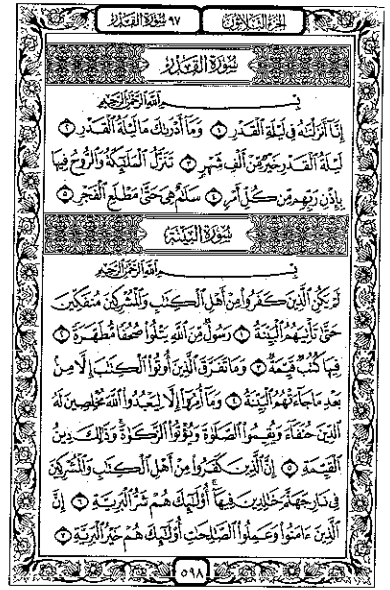 الجزء الثلاثون ٩٧ سورة القدر
سورة القدر
بسم الله الرحمن الرحيم
إِنَّآ أَنزَلْنَٰهُ فِي لَيْلَةِ ٱلْقَدْرِ ١ وَمَآ أَدْرَىٰكَ مَا لَيْلَةُ ٱلْقَدْرِ ٢
لَيْلَةُ ٱلْقَدْرِ خَيْرٌ مِّنْ أَلْفِ شَهْرٍ ٣ تَنَزَّلُ ٱلْمَلَٰٓئِكَةُ وَٱلرُّوحُ فِيهَا
بِإِذْنِ رَبِّهِم مِّن كُلِّ أَمْرٍ ٤ سَلَٰمٌ هِيَ حَتَّىٰ مَطْلَعِ ٱلْفَجْرِ ٥
سورة البينة
بسم الله الرحمن الرحيم
لَمْ يَكُنِ ٱلَّذِينَ كَفَرُوا۟ مِنْ أَهْلِ ٱلْكِتَٰبِ وَٱلْمُشْرِكِينَ مُنفَكِّينَ
حَتَّىٰ تَأْتِيَهُمُ ٱلْبَيِّنَةُ ١ رَسُولٌ مِّنَ ٱللَّهِ يَتْلُوا۟ صُحُفًا مُّطَهَّرَةً ٢
فِيهَا كُتُبٌ قَيِّمَةٌ ٣ وَمَا تَفَرَّقَ ٱلَّذِينَ أُوتُوا۟ ٱلْكِتَٰبَ إِلَّا مِنۢ
بَعْدِ مَا جَآءَتْهُمُ ٱلْبَيِّنَةُ ٤ وَمَآ أُمِرُوٓا۟ إِلَّا لِيَعْبُدُوا۟ ٱللَّهَ مُخْلِصِينَ لَهُ
ٱلدِّينَ حُنَفَآءَ وَيُقِيمُوا۟ ٱلصَّلَوٰةَ وَيُؤْتُوا۟ ٱلزَّكَوٰةَ ۚ وَذَٰلِكَ دِينُ
ٱلْقَيِّمَةِ ٥ إِنَّ ٱلَّذِينَ كَفَرُوا۟ مِنْ أَهْلِ ٱلْكِتَٰبِ وَٱلْمُشْرِكِينَ
فِي نَارِ جَهَنَّمَ خَٰلِدِينَ فِيهَآ ۚ أُو۟لَٰٓئِكَ هُمْ شَرُّ ٱلْبَرِيَّةِ ٦ إِنَّ
ٱلَّذِينَ ءَامَنُوا۟ وَعَمِلُوا۟ ٱلصَّٰلِحَٰتِ أُو۟لَٰٓئِكَ هُمْ خَيْرُ ٱلْبَرِيَّةِ ٧
٥٩٨